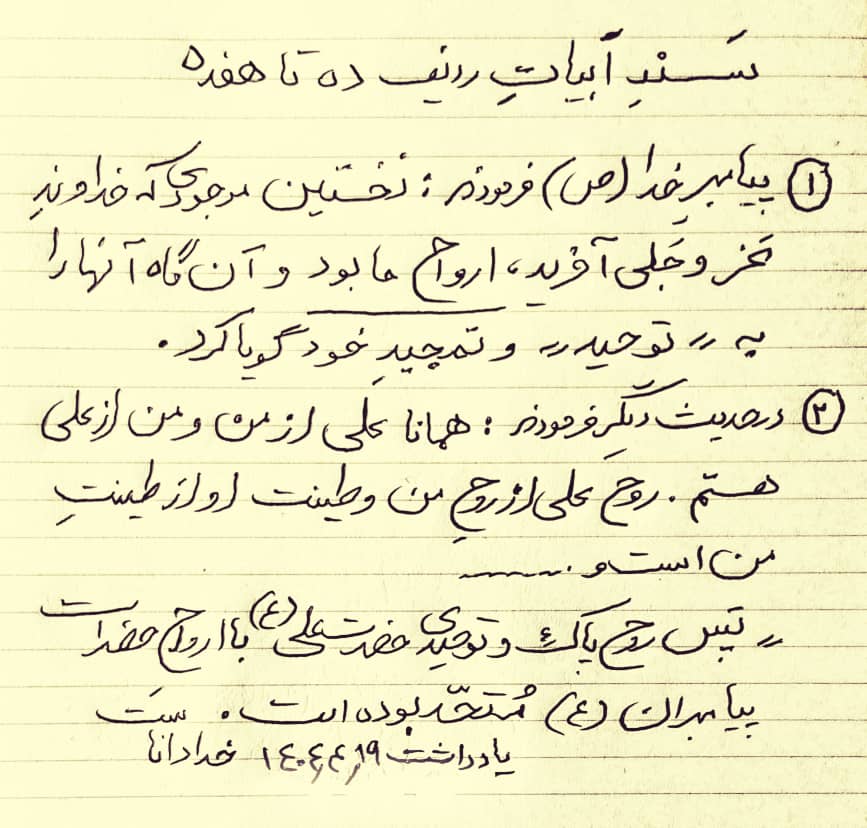 سَندِ اَبیاتِ ردیف ده تا هفده
۱ پیامبرِ خدا (ص) فرمودند : نخستین موجودی که خداوندِ
عَز و جَلی آفرید، ارواح ما بود و آن گاه آنها را
به " توحید " و تمجیدِ خود گویا کرد .
۲ در حدیث دیگر فرمودند : همانا علی از من و من از علی
هستم . روح علی از روحِ من و طینت او از طینتِ
من است و ........
" پس روح پاک و توحیدی حضرت علی (ع) با ارواح حضرات
پیامبران (ع) مُتحّد بوده است .
یادداشت ۱۴۰۴٫۴٫۱۹ خدادانا